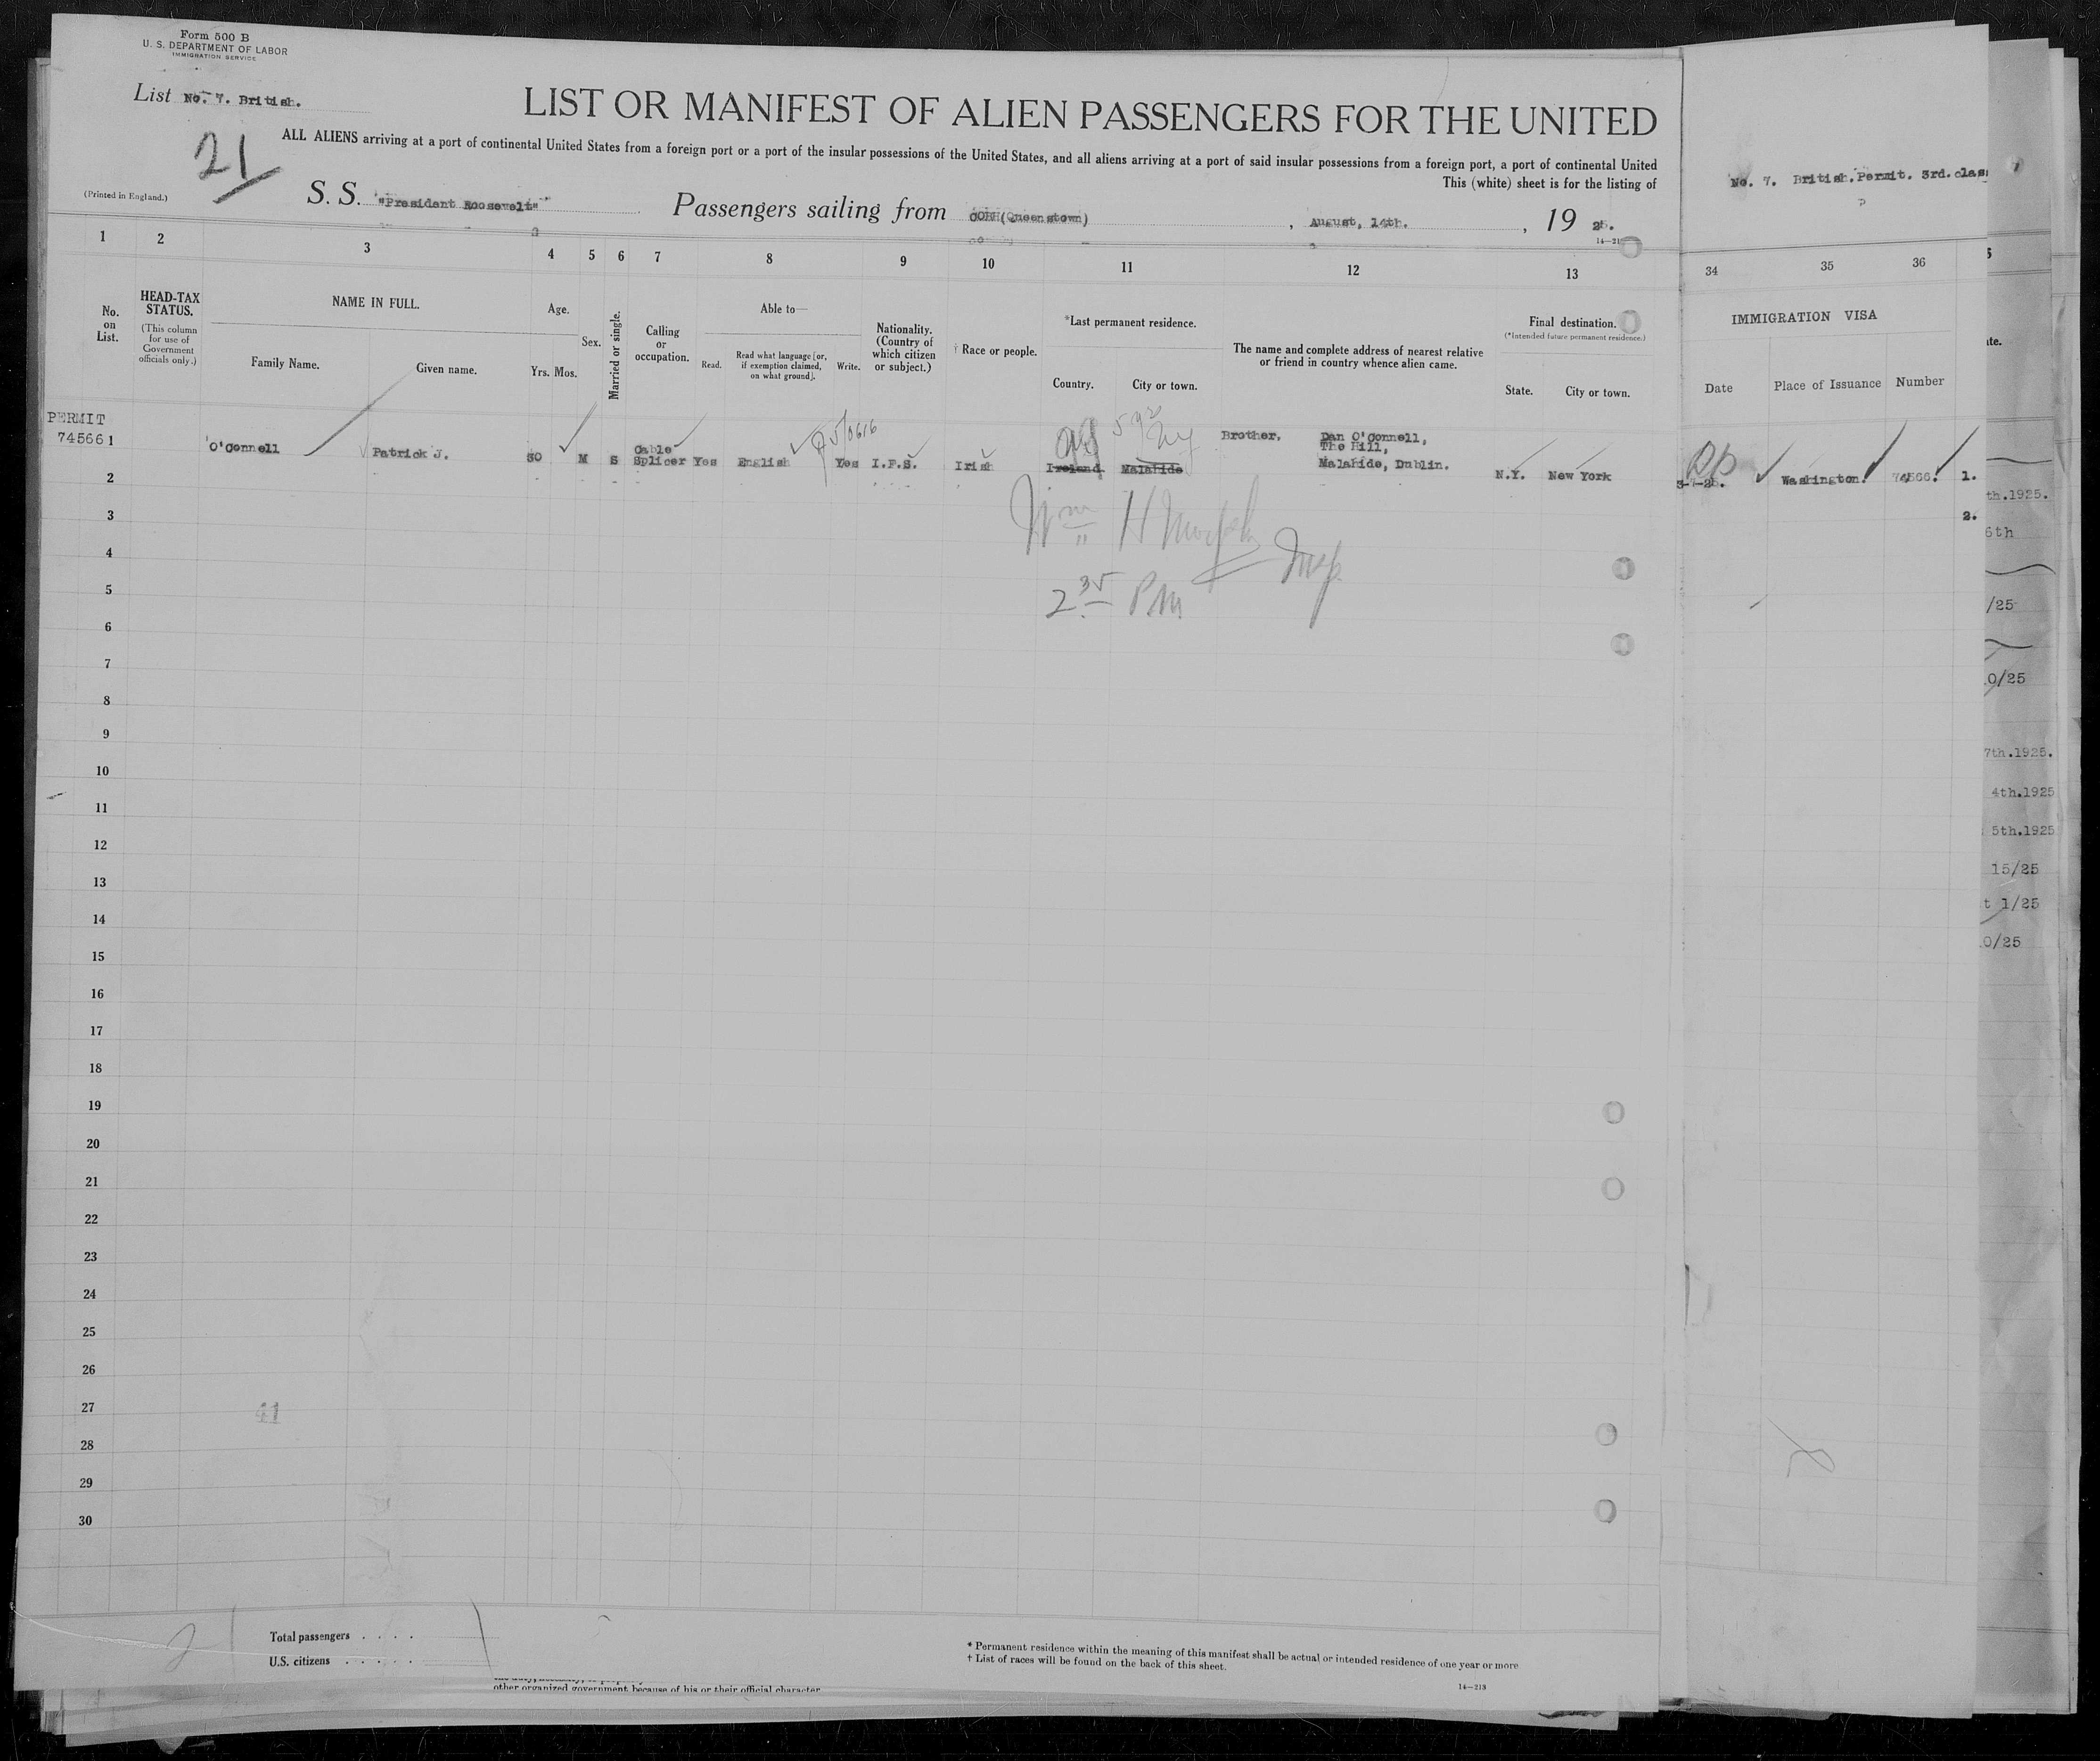 Form 500 B
U. S. DEPARTMENT OF LABOR
IMMIGRATION SERVICE
List No. 7. British.
21
LIST OR MANIFEST OF ALIEN PASSENGERS FOR THE UNITED
ALL ALIENS arriving at a port of continental United States from a foreign port or a port of the insular possessions of the United States, and all aliens arriving at a port of said insular possessions from a foreign port, a port of continental United
This (white) sheet is for the listing of
(Printed in England.)
S. S. "President Roosevelt" Passengers sailing from COBH(Queenstown), August, 14th., 19 25.
No. 7. British.Permit. 3rd.clas
1 2 3 4 5 6 7 8 9 10 11 12 13 34 35 36
No. on List.
HEAD-TAX STATUS.
(This column for use of Government officials only.)
NAME IN FULL.
Family Name. Given name.
Age.
Yrs. Mos.
Sex.
Married or single.
Calling or occupation.
Able to—
Read. Read what language [or, if exemption claimed, on what ground]. Write.
Nationality. (Country of which citizen or subject.)
† Race or people.
*Last permanent residence.
Country. City or town.
The name and complete address of nearest relative or friend in country whence alien came.
Final destination.
(*Intended future permanent residence.)
State. City or town.
IMMIGRATION VISA
Date Place of Issuance Number
PERMIT
745661
O'Connell Patrick J. 30 M S Cable Splicer Yes English Yes I.F.S. Irish Ireland. Malahide Brother, Dan O'Connell,
The Hill,
Malahide, Dublin. N.Y. New York 3-7-25. Washington. 74566. 1.
2 2.
3
Wm H Murphy Insp.
4
5
2 35 PM
6
7
8
9
10
11
12
13
14
15
16
17
18
19
20
21
22
23
24
25
26
27
41
28
29
30
th.1925.
6th
/25
0/25
7th.1925.
4th.1925
5th.1925
15/25
t 1/25
0/25
Total passengers . . . .
U.S. citizens . . . . .
* Permanent residence within the meaning of this manifest shall be actual or intended residence of one year or more
† List of races will be found on the back of this sheet.
14—213
other organized government because of his or their official character